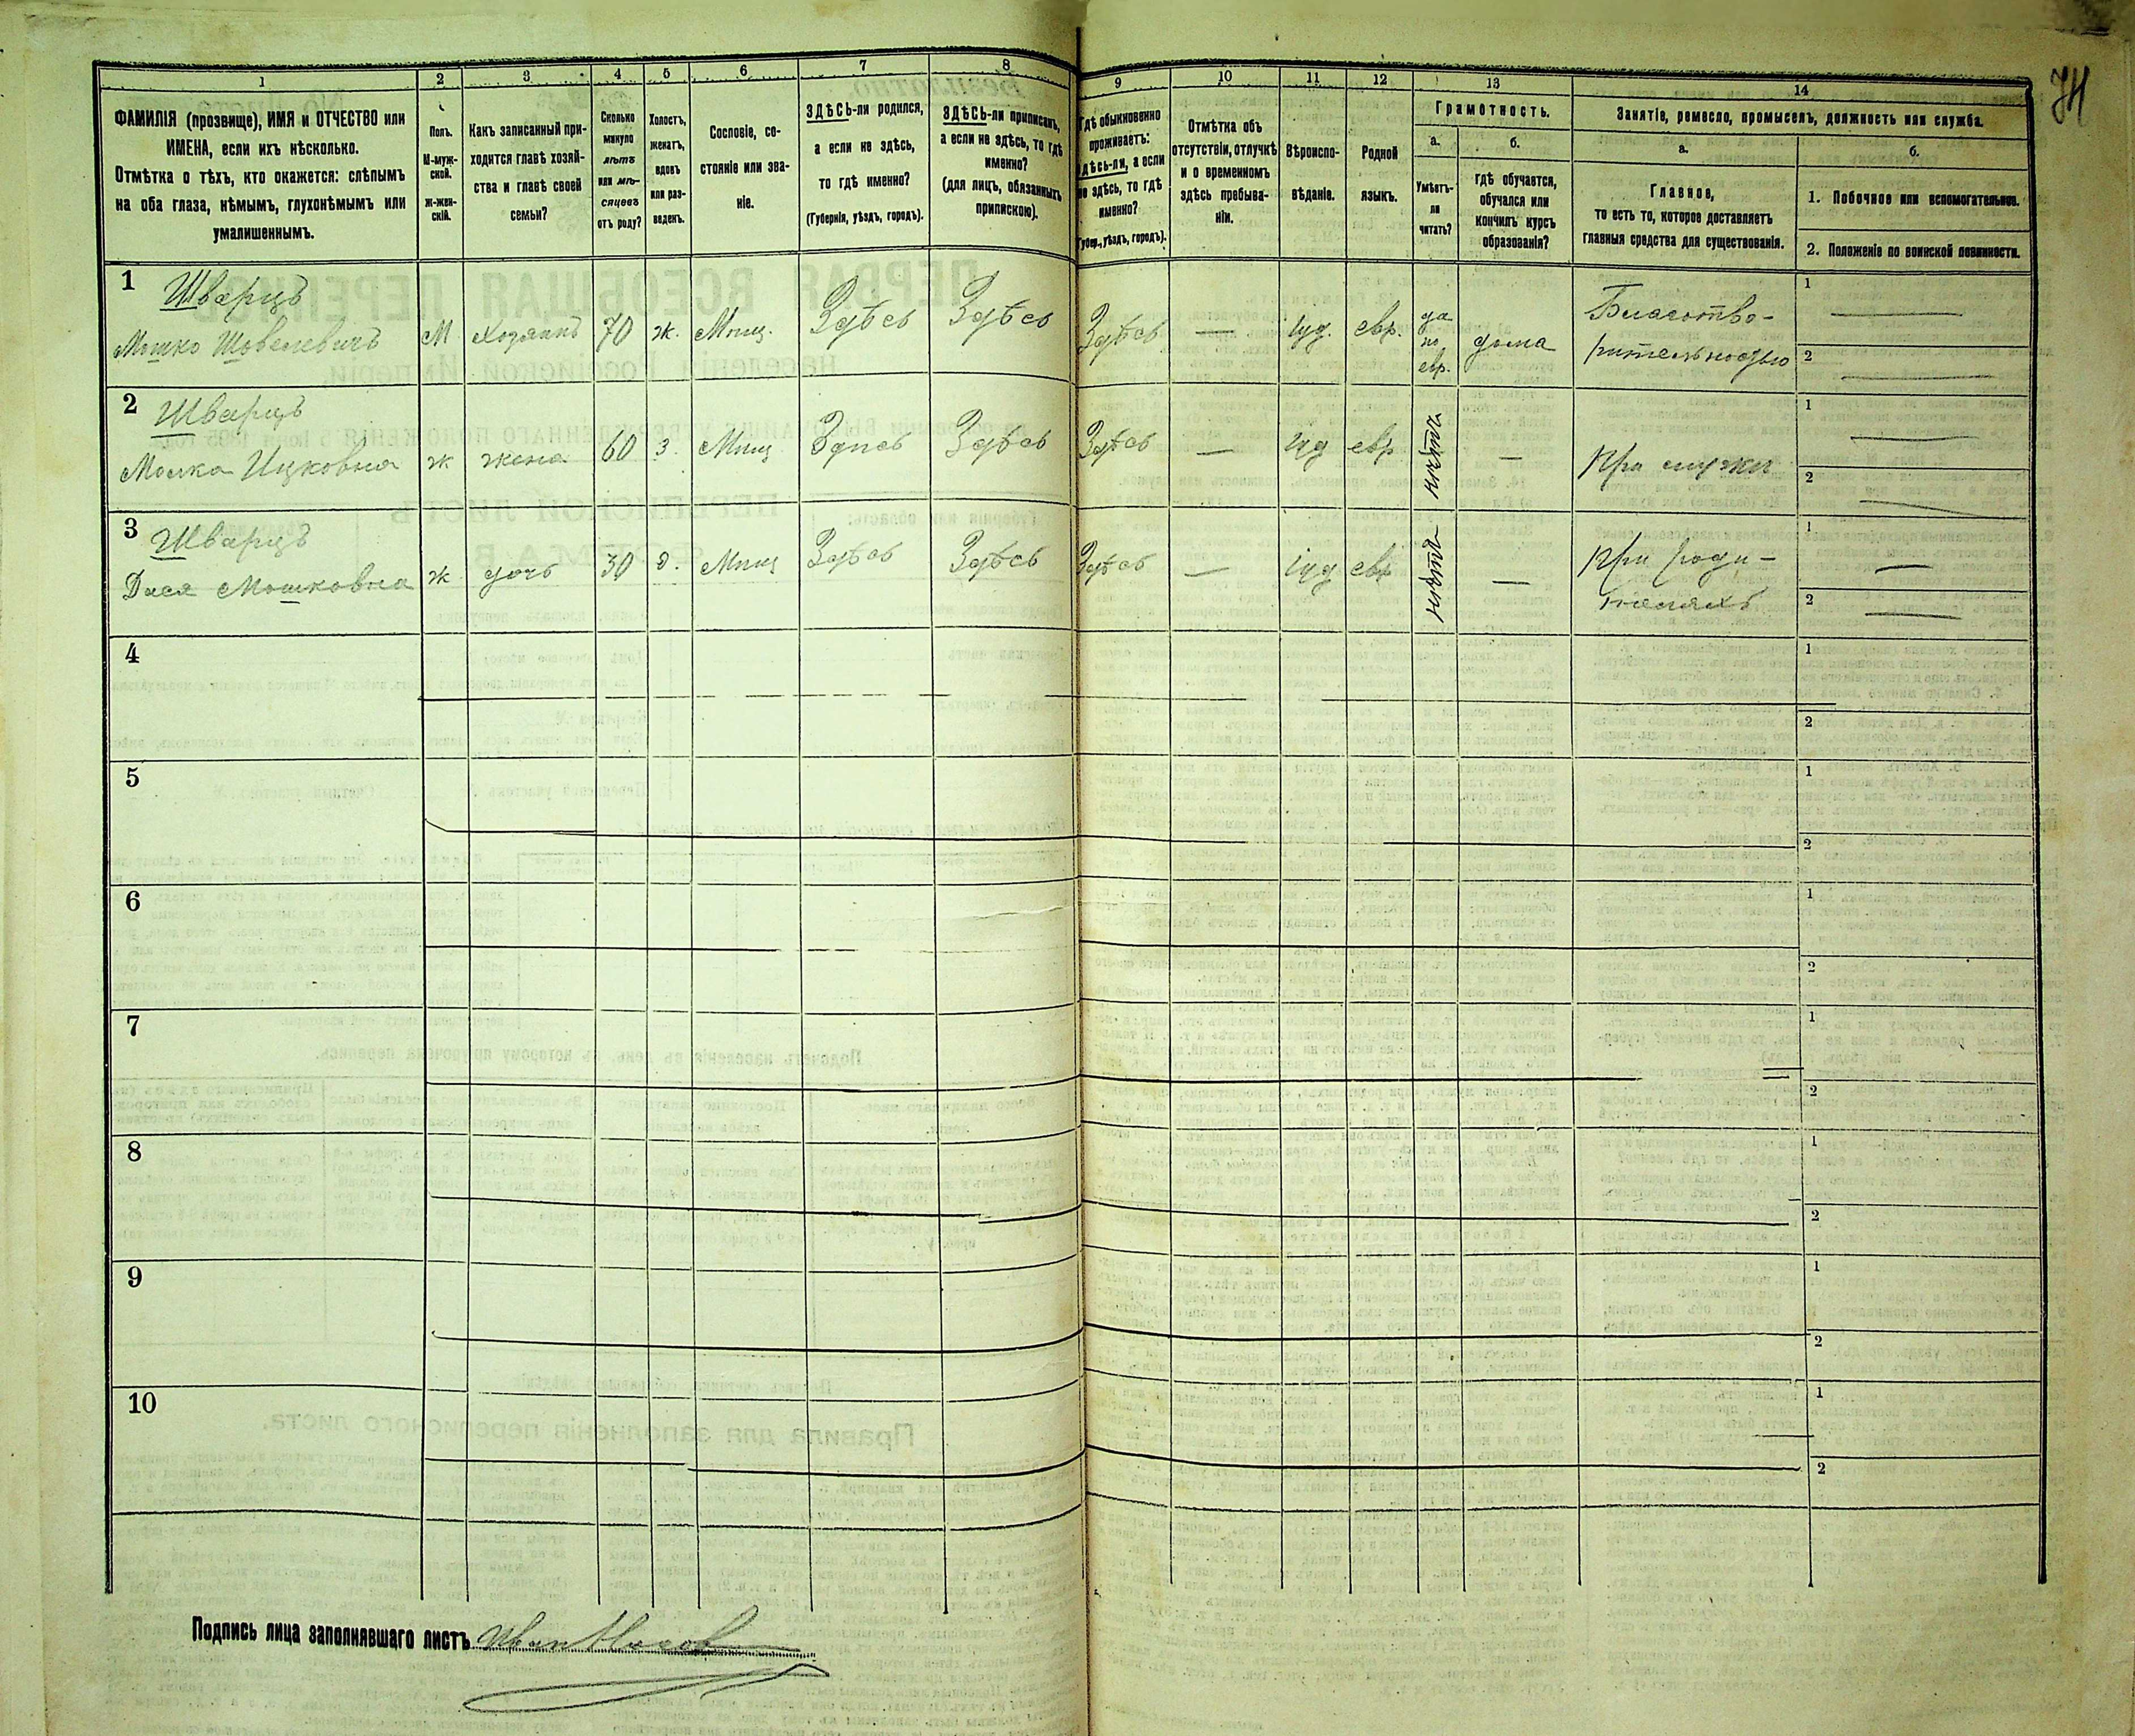 74
1
2
3
4
5
6
7
8
9
10
11
12
13
14
ФАМИЛІЯ (прозвище), ИМЯ и ОТЧЕСТВО или
ИМЕНА, если ихъ нѣсколько.
Отмѣтка о тѣхъ, кто окажется: слѣпымъ
на оба глаза, нѣмымъ, глухонѣмымъ или
умалишеннымъ.
Полъ.
М-муж-
ской.
Ж-жен-
скій.
Какъ записанный при-
ходится главѣ хозяй-
ства и главѣ своей
семьи?
Сколько
минуло
лѣтъ
или мѣ-
сяцевъ
отъ роду?
Холостъ,
женатъ,
вдовъ
или раз-
веденъ.
Сословіе, со-
стояніе или зва-
ніе.
ЗДѢСЬ-ли родился,
а если не здѣсь,
то гдѣ именно?
(Губернія, уѣздъ, городъ).
ЗДѢСЬ-ли приписанъ,
а если не здѣсь, то гдѣ
именно?
(для лицъ, обязанныхъ
припискою).
Гдѣ обыкновенно
проживаетъ:
здѣсь-ли, а если
не здѣсь, то гдѣ
именно?
(Губер., уѣздъ, городъ).
Отмѣтка объ
отсутствіи, отлучкѣ
и о временномъ
здѣсь пребыва-
ніи.
Вѣроиспо-
вѣданіе.
Родной
языкъ.
Грамотность.
а.
б.
Умѣетъ-
ли
читать?
гдѣ обучается,
обучался или
кончилъ курсъ
образованія?
Занятіе, ремесло, промыселъ, должность или служба.
а.
б.
Главное,
то есть то, которое доставляетъ
главныя средства для существованія.
1. Побочное или вспомогательное.
2. Положеніе по воинской повинности.
1
Шварцъ
Мошко Шовелевичъ М Хозяинъ 70 ж. Мѣщ. Здѣсь Здѣсь Здѣсь — іуд. евр. да по евр. дома Благотво-
рительностью
1 —
2 —
2
Шварцъ
Малка Ицковна ж жена 60 з. Мѣщ Здѣсь Здѣсь Здѣсь — іуд евр нѣтъ — При мужѣ
1 —
2 —
3
Шварцъ
Дася Мошковна ж дочь 30 д. Мѣщ Здѣсь Здѣсь Здѣсь — іуд евр нѣтъ — При роди-
теляхъ
1 —
2 —
4
1
2
5
1
2
6
1
2
7
1
2
8
1
2
9
1
2
10
1
2
Подпись лица заполнявшаго листъ Иван